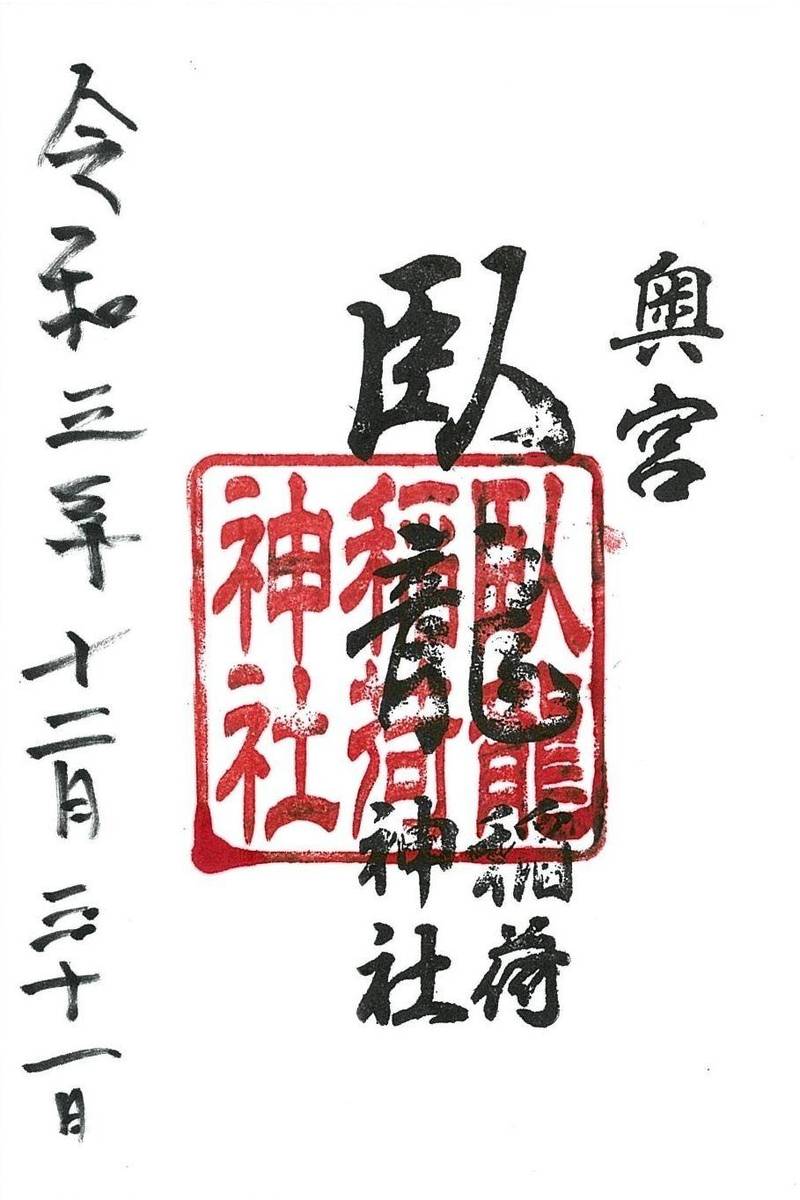 奥宮
臥龍
稲荷
神社
臥龍
稲荷
神社
令和三年十二月三十一日